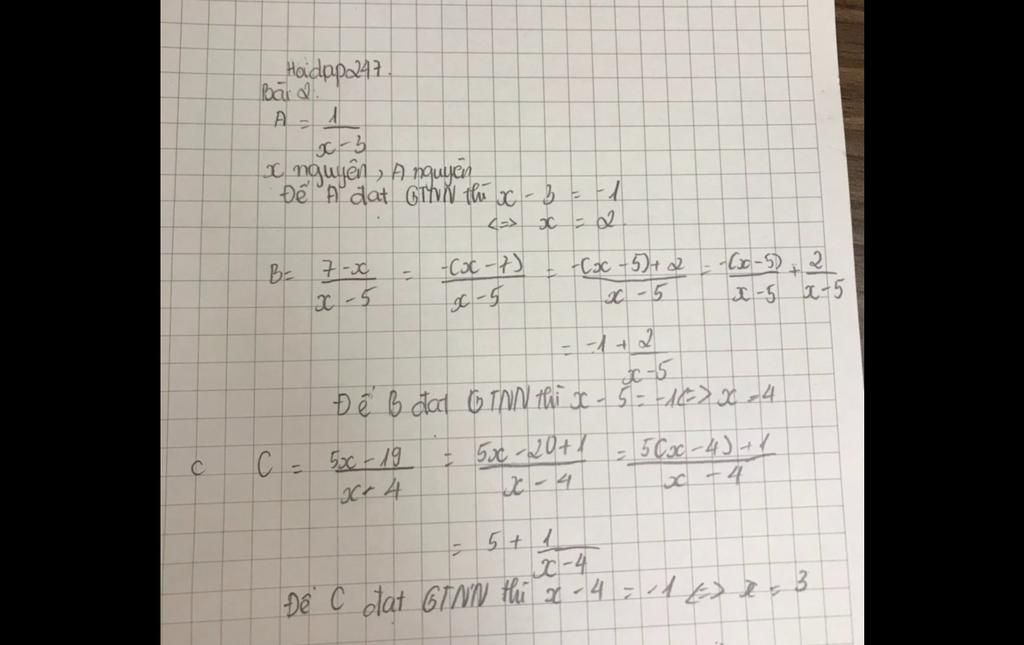 Hoidap247.
Bài 2.
A = 1/(x-3)
x nguyên, A nguyên
Để A đạt GTNN thì x - 3 = -1
<=> x = 2
B = (7-x)/(x-5) = -(x-7)/(x-5) = (-(x-5)+2)/(x-5) = -(x-5)/(x-5) + 2/(x-5)
= -1 + 2/(x-5)
Để B đạt GTNN thì x - 5 = -1 <=> x = 4
c C = (5x-19)/(x-4) = (5x-20+1)/(x-4) = (5(x-4)+1)/(x-4)
= 5 + 1/(x-4)
Để C đạt GTNN thì x - 4 = -1 <=> x = 3